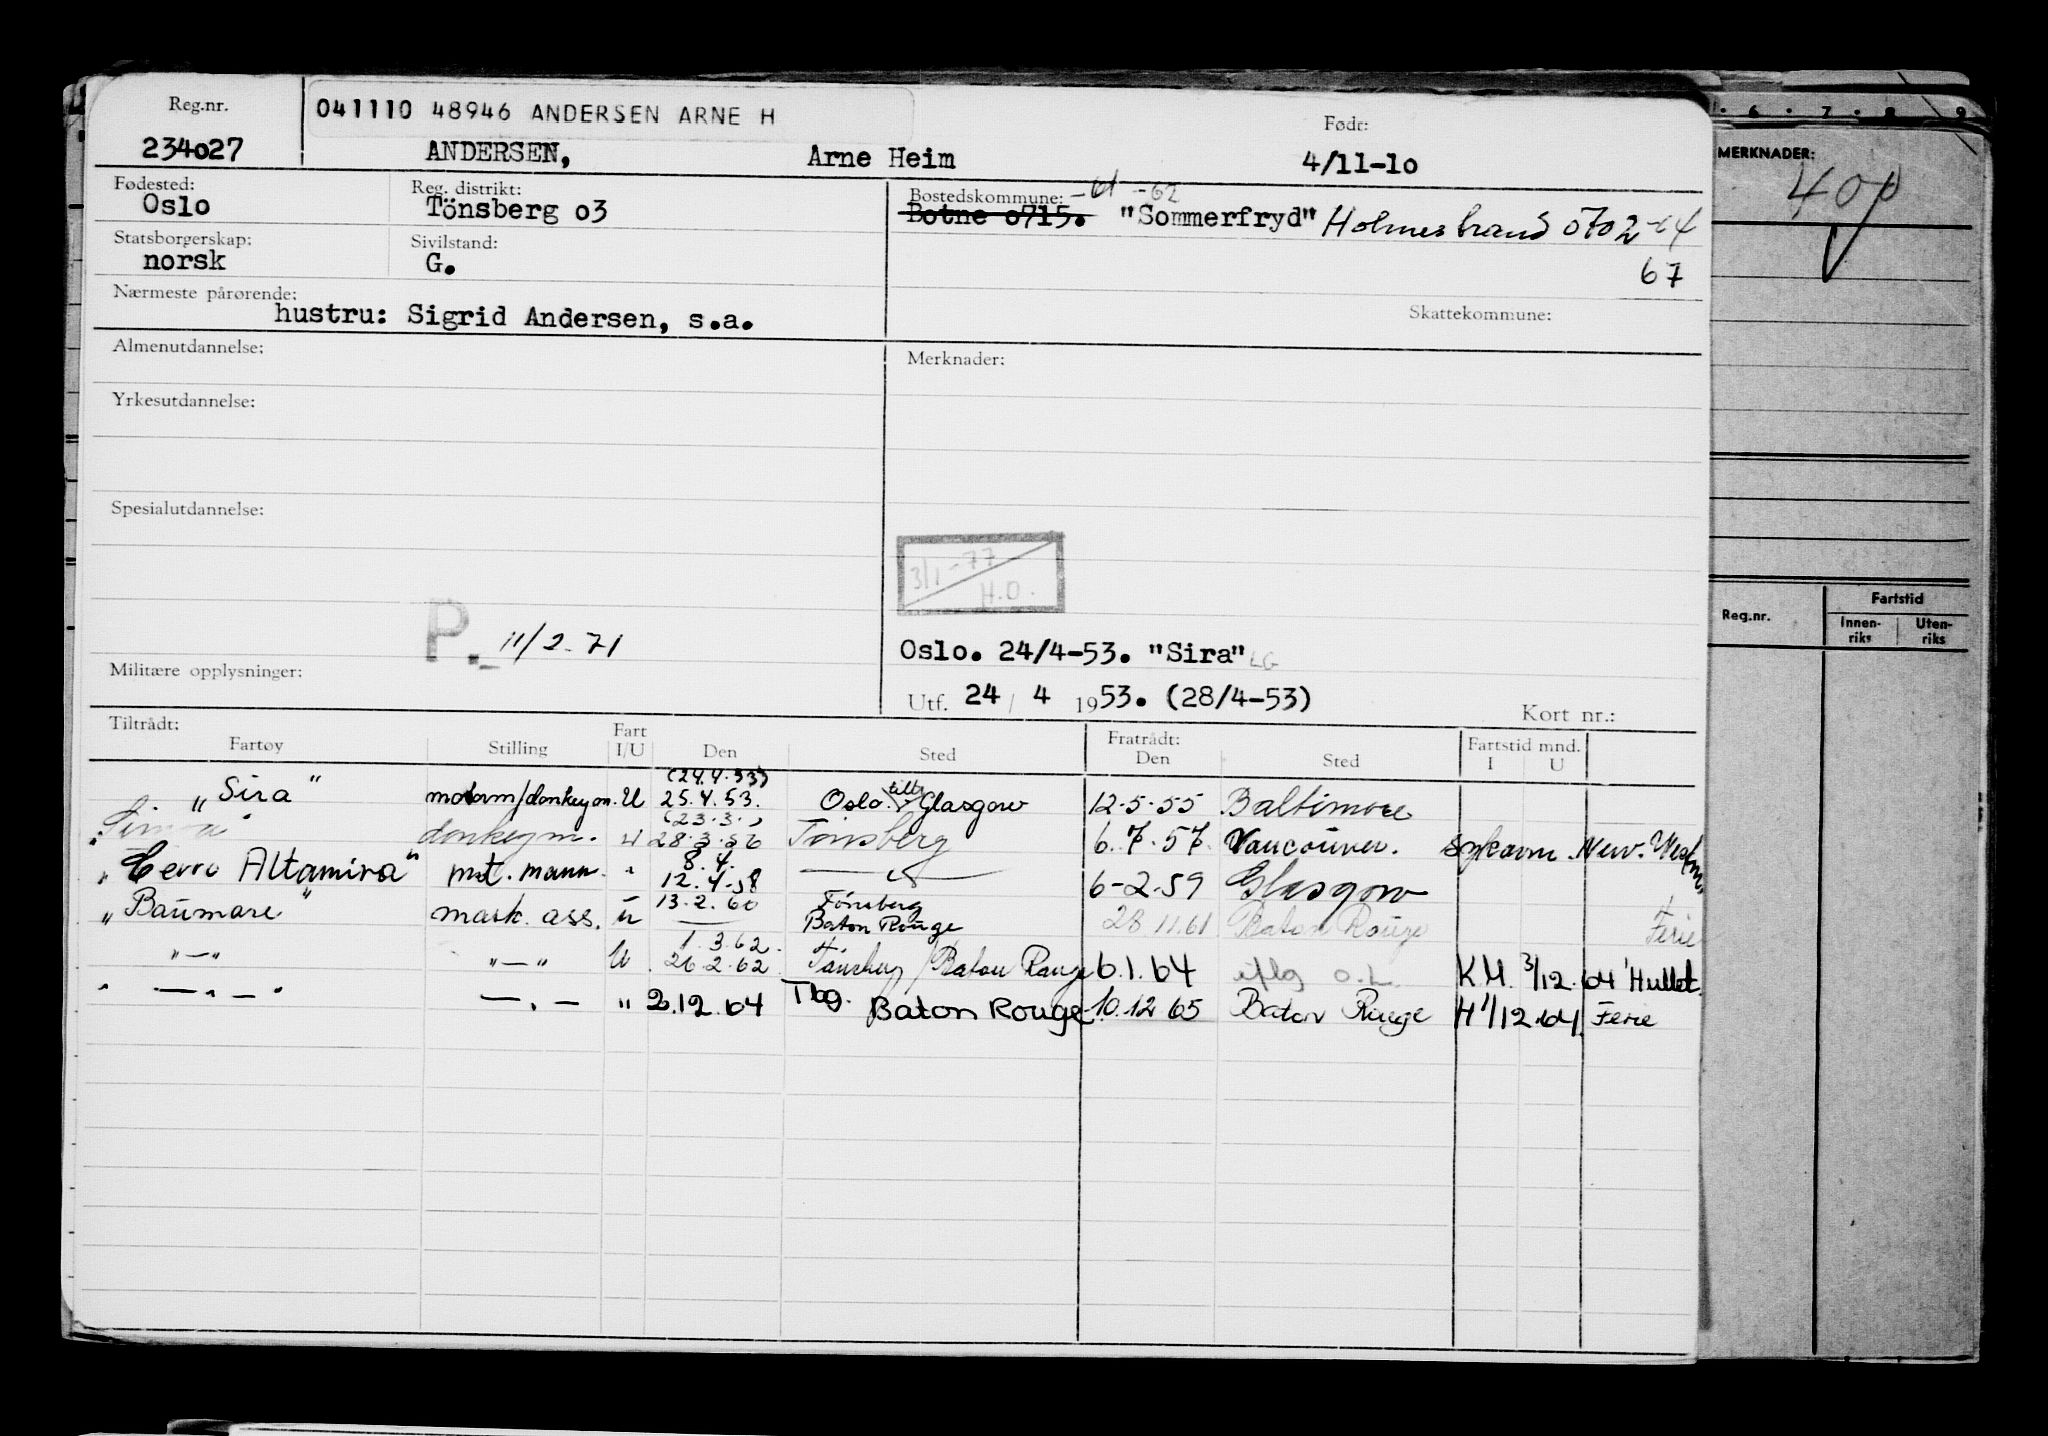 Reg.nr. 041110 48946 ANDERSEN ARNE H Født:
234o27 ANDERSEN, Arne Heim 4/11-1o
Fødested: Reg. distrikt: Bostedskommune: -61 -62
Oslo Tönsberg o3 Botne o715. "Sommerfryd" Holmestrand 0702-64
67
Statsborgerskap: Sivilstand:
norsk G.
Nærmeste pårørende: Skattekommune:
hustru: Sigrid Andersen, s.a.
Almenutdannelse: Merknader:
Yrkesutdannelse:
Spesialutdannelse:
3/1-77
H.O.
P. 11/2-71
Oslo. 24/4-53. "Sira" LG
Militære opplysninger:
Utf. 24 / 4 1953. (28/4-53)
Kort nr.:
Tiltrådt: Fart Fratrådt: Fartstid mnd.
Fartøy Stilling I/U Den Sted Den Sted I U
(24.4.53)
"Sira" motorm/donkeym. U 25.4.53. Oslo tilb Glasgow 12-5-55 Baltimore
(23.3.)
donkeym. U 28.3.56 Tönsberg 6.7.57. Vancouver. sykavm. New.
8.4.
"Cerro Altamira" mot. mann. " 12.4.58 6-2-59 Glasgow
"Baumare" mask. ass. U 13.2.60 Tönsberg
Baton Rouge 28.11.61 Baton Rouge Ferie
1.3.62.
"—" "—" U. 26.2.62 Tönsberg/Baton Rouge 6.1.64 iflg o.L. KM. 3/12.64 'Hullet.
" — " — " — " — " 2.12.64 Tbg. Baton Rouge 10.12.65 Baton Rouge H 1/12.64. Ferie
6 · 7 · 8 · 9
MERKNADER:
40p
Reg.nr. Fartstid
Innen-
riks Uten-
riks